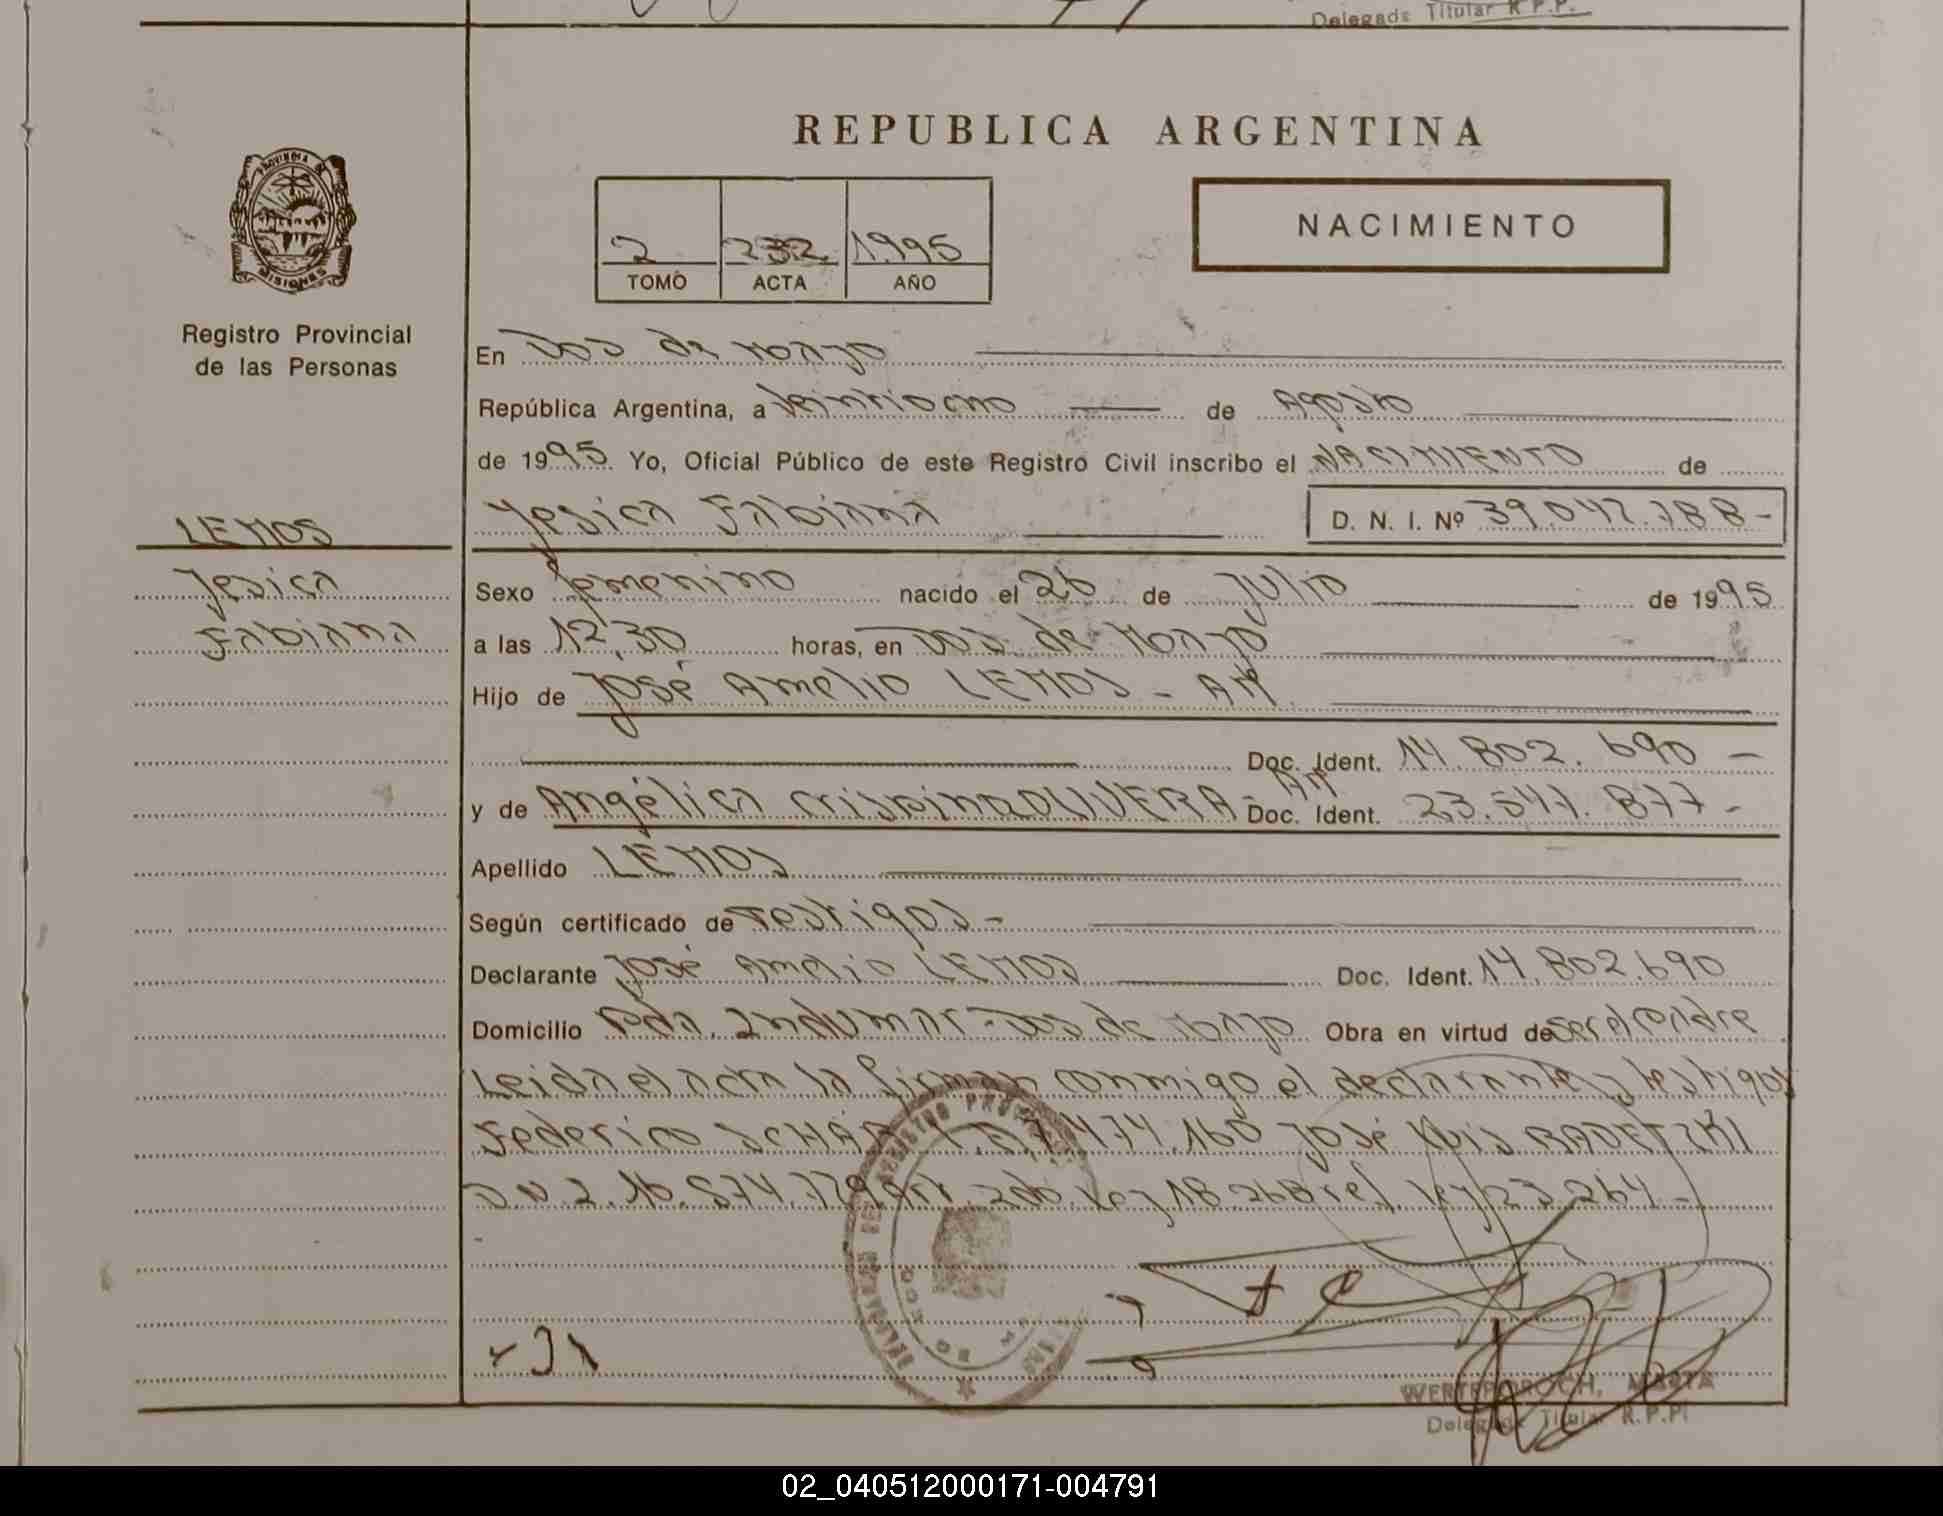 Delegada Titular R.P.P.
REPUBLICA ARGENTINA
PROVINCIA DE
MISIONES
Registro Provincial
de las Personas
2 232 1995
TOMO ACTA AÑO
NACIMIENTO
En Dos de Mayo
República Argentina, a Veintiocho de Agosto
de 1995. Yo, Oficial Público de este Registro Civil inscribo el NACIMIENTO de
Yesica Fabiana D. N. I. Nº 39.042.788-
LEMOS
Yesica
Fabiana
Sexo femenino nacido el 26 de Julio de 1995
a las 12,30 horas, en Dos de Mayo
Hijo de José Amelio LEMOS - AM
Doc. Ident. 14.802.690 -
y de Angélica Crispina OLIVERA - AM Doc. Ident. 23.547.877 -
Apellido LEMOS
Según certificado de Testigos -
Declarante José Amelio LEMOS Doc. Ident. 14.802.690
Domicilio Pda. Indumar - Dos de Mayo Obra en virtud de ser el padre
Leida el acta la firman conmigo el declarante y testigos
Federico 7.474.160 José Luis RADETZKI
D.N.I. 16.874.779 Art. 2do. Ley 18.268 ref. Ley 23.264 -
WERTERBROCH, MARTA
Delegada Titular R.P.P.
02_040512000171-004791